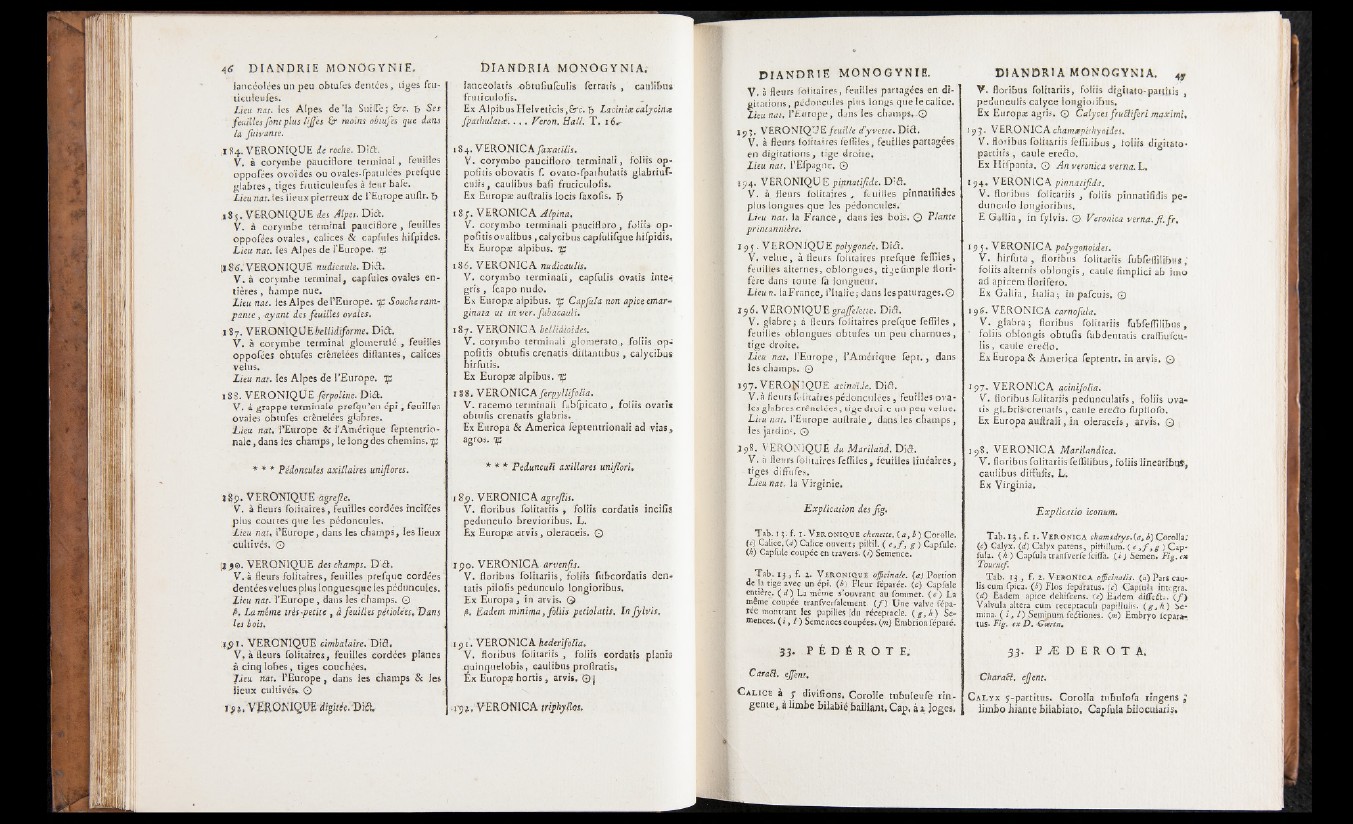 46 DIANDRIE MONOGYNIE.
lancéolées un peu obtuses dentées, tiges fru-
ticuleuses.
Lieu nat. les Alpes de la Suisse; &c. ♄ Ses
feuilles sont plus lisses & moins obtuses que dans
la suivante.
184. VERONIQUE de roche. Dict.
V. à corymbe pauciflore terminal, feuilles
opposées ovoïdes ou ovales-spatulées presque
glabres, tiges fruticuleuses à leur base.
Lieu nat. les lieux pierreux de l'Europe austr. ♄
185. VERONIQUE des Alpes. Dict.
V. à corymbe terminal pauciflore, feuilles
opposées ovales, calices & capsules hispides.
Lieu nat. les Alpes de l'Europe. ♃
186. VERONIQUE nudicaule. Dict.
V. à corymbe terminal, capsules ovales en-
tières, hampe nue.
Lieu nat. les Alpes de l'Europe. ♃ Souche ram-
pante, ayant des feuilles ovales.
187. VERONIQUE bellidiforme. Dict.
V. à corymbe terminal glomerulé, feuilles
opposées obtuses crênelées distantes, calices
velus.
Lieu nat. les Alpes de l'Europe. ♃
188. VERONIQUE serpoline. Dict.
V. à grappe terminale presqu'en épi, feuilles
ovales obtuses crênelées glabres.
Lieu nat. l'Europe & l'Amérique septentrio-
nale, dans les champs, le long des chemins. ♃
* * * Pédoncules axillaires uniflores.
189. VERONIQUE agreste.
V. à fleurs solitaires, feuilles cordées incisées
plus courtes que les pédoncules.
Lieu nat. l'Europe, dans les champs, les lieux
cultivés. ☉
190. VERONIQUE des champs. Dict.
V. à fleurs solitaires, feuilles presque cordées
dentées velues plus longues que les pédoncules.
Lieu nat. l'Europe, dans les champs. ☉
β. La même très-petite, à feuilles pétiolées. Dans
les bois.
191. VERONIQUE cimbalaire. Dict.
V. à fleurs solitaires, feuilles cordées planes
à cinq lobes, tiges couchées.
Lieu nat. l'Europe, dans les champs & les
lieux cultivés. ☉
192. VERONIQUE digitée. Dict.
DIANDRIA MONOGYNIA.
lanceolatis obtusiusculis serratis, caulibus
fruticulosis.
Ex Alpibus Helveticis, &c. ♄ Laciniæ calycinæ
spathulatæ. . . . Veron. Hall. T. 16.
184. VERONICA saxatilis.
V. corymbo paucifloro terminali, foliis op-
positis obovatis s. ovato-spathulatis glabrius-
culis, caulibus basi fruticulosis.
Ex Europæ australis locis saxosis. ♄
185. VERONICA Alpina.
V. corymbo terminali paucifloro, foliis op-
positis ovalibus, calycibus capsulisque hispidis.
Ex Europæ alpibus. ♃
186. VERONICA nudicaulis.
V. corymbo terminali, capsulis ovatis inte-
gris, scapo nudo.
Ex Europæ alpibus. ♃ Capsula non apice emar-
ginata ut in ver. subacauli.
187. VERONICA bellidioides.
V. corymbo terminali glomerato, foliis op-
positis obtusis crenatis distantibus, calycibus
hirsutis.
Ex Europæ alpibus. ♃
188. VERONICA serpyllifolia.
V. racemo terminali subspicato, foliis ovatis
obtusis crenatis glabris.
Ex Europa & America septentrionali ad vias,
agros. ♃
* * * Pedunculi axillares uniflori.
189. VERONICA agrestis.
V. floribus solitariis, foliis cordatis incisis
pedunculo brevioribus. L.
Ex Europæ arvis, oleraceis. ☉
190. VERONICA arvensis.
V. floribus solitariis, foliis subcordatis den-
tatis pilosis pedunculo longioribus.
Ex Europa, in arvis. ☉
β. Eadem minima, foliis petiolatis. In sylvis.
191. VERONICA hederifolia.
V. floribus solitariis, foliis cordatis planis
quinquelobis, caulibus prostratis.
Ex Europæ hortis, arvis. ☉
192. VERONICA triphyllos.
DIANDRIE MONOGYNIE.
V. à fleurs solitaires, feuilles partagées en di-
gitations, pédoncules plus longs que le calice.
Lieu nat. l'Europe, dans les champs. ☉
193. VERONIQUE feuille d'yvette. Dict.
V. à fleurs solitaires sessiles, feuilles partagées
en digitations, tige droite.
Lieu nat. l'Espagne. ☉
194. VERONIQUE pinnatifide. Dict.
V. à fleurs solitaires, feuilles pinnatifides
plus longues que les pédoncules.
Lieu nat. la France, dans les bois. ☉ Plante
printannière.
195. VERONIQUE polygonée. Dict.
V. velue, à fleurs solitaires presque sessiles,
feuilles alternes, oblongues, tige simple flori-
fère dans toute sa longueur.
Lieu n. la France, l'Italie; dans les paturages. ☉
196. VERONIQUE grasselette. Dict.
V. glabre; à fleurs solitaires presque sessiles,
feuilles oblongues obtuses un peu charnues,
tige droite.
Lieu nat. l'Europe, l'Amérique sept., dans
les champs. ☉
197. VERONIQUE acinoïde. Dict.
V. à fleurs solitaires pédonculées, feuilles ova-
les glabres crênelées, tige droite un peu velue.
Lieu nat. l'Europe australe, dans les champs,
les jardins. ☉
198. VERONIQUE du Mariland. Dict.
V. à fleurs solitaires sessiles, feuilles linéaires,
tiges diffuses.
Lieu nat. la Virginie.
Explication des fig.
Tab. 13. f. 1. VERONIQUE chenette. (a, b) Corolle.
(c) Calice. (d) Calice ouvert; pistil. (e, f, g) Capsule.
(h) Capsule coupée en travers. (i) Semence.
Tab. 13, f. 2. VERONIQUE officinale. (a) Portion
de la tige avec un épi. (b) Fleur séparée. (c) Capsule
entière. (d) La même s'ouvrant au sommet. (e) La
même coupée transversalement (f) Une valve sépa-
rée montrant les papilles du réceptacle. (g, h) Se-
mences. (i, l) Semences coupées. (m) Embrion séparé.
33. PÉDÉROTE.
Caract. essent.
CALICE à 5 divisions. Corolle tubuleuse rin-
gente, à limbe bilabié baillant. Cap. à 2 loges.
DIANDRIA MONOGYNIA. 47
V. floribus solitariis, foliis digitato-partitis,
pedunculis calyce longioribus.
Ex Europæ agris. ☉ Calyces fructiferi maximi.
193. VERONICA chamæpithyoides.
V. floribus solitariis sessilibus, foliis digitato-
partitis, caule erecto.
Ex Hispania. ☉ An veronica verna. L.
194. VERONICA pinnatifida.
V. floribus solitariis, foliis pinnatifidis pe-
dunculo longioribus.
E Gallia, in sylvis. ☉ Veronica verna. fl. fr.
195. VERONICA polygonoides.
V. hirsuta, floribus solitariis subsessilibus,
foliis alternis oblongis, caule simplici ab imo
ad apicem florifero.
Ex Gallia, Italia; in pascuis. ☉
196. VERONICA carnosula.
V. glabra; floribus solitariis subsessilibus,
foliis oblongis obtusis subdentatis crassiuscu-
lis, caule erecto.
Ex Europa & America septentr. in arvis. ☉
197. VERONICA acinifolia.
V. floribus solitariis pedunculatis, foliis ova-
tis glabris crenatis, caule erecto supilosо.
Ex Europa australi, in oleraceis, arvis. ☉
198. VERONICA Marilandica.
V. floribus solitariis sessilibus, foliis linearibus,
caulibus diffusis. L.
Ex Virginia.
Explicatio iconum.
Tab. 13, f. 1. VERONICA chamædrys. (a, b) Corolla.
(c) Calyx. (d) Calyx patens, pistillum. (e, f, g) Cap-
sula. (h) Capsula transverse scissa. (i) Semen. Fig. ex
Tournef.
Tab. 13, f. 2. VERONICA officinalis. (a) Pars cau-
lis cum spica. (b) Flos separatus. (c) Capsula integra.
(d) Eadem apice dehiscens. (e) Eadem dissecta. (f)
Valvula altera cum receptaculi papillulis. (g, h) Se-
mina. (i, l) Seminum sectiones. (m) Embryo separa-
tus. Fig. ex D. Gærtn.
33. PÆDEROTA.
Charact. essent.
CALYX 5-partitus. Corolla tubulosa ringens;
limbo hiante bilabiato. Capsula bilocularis.